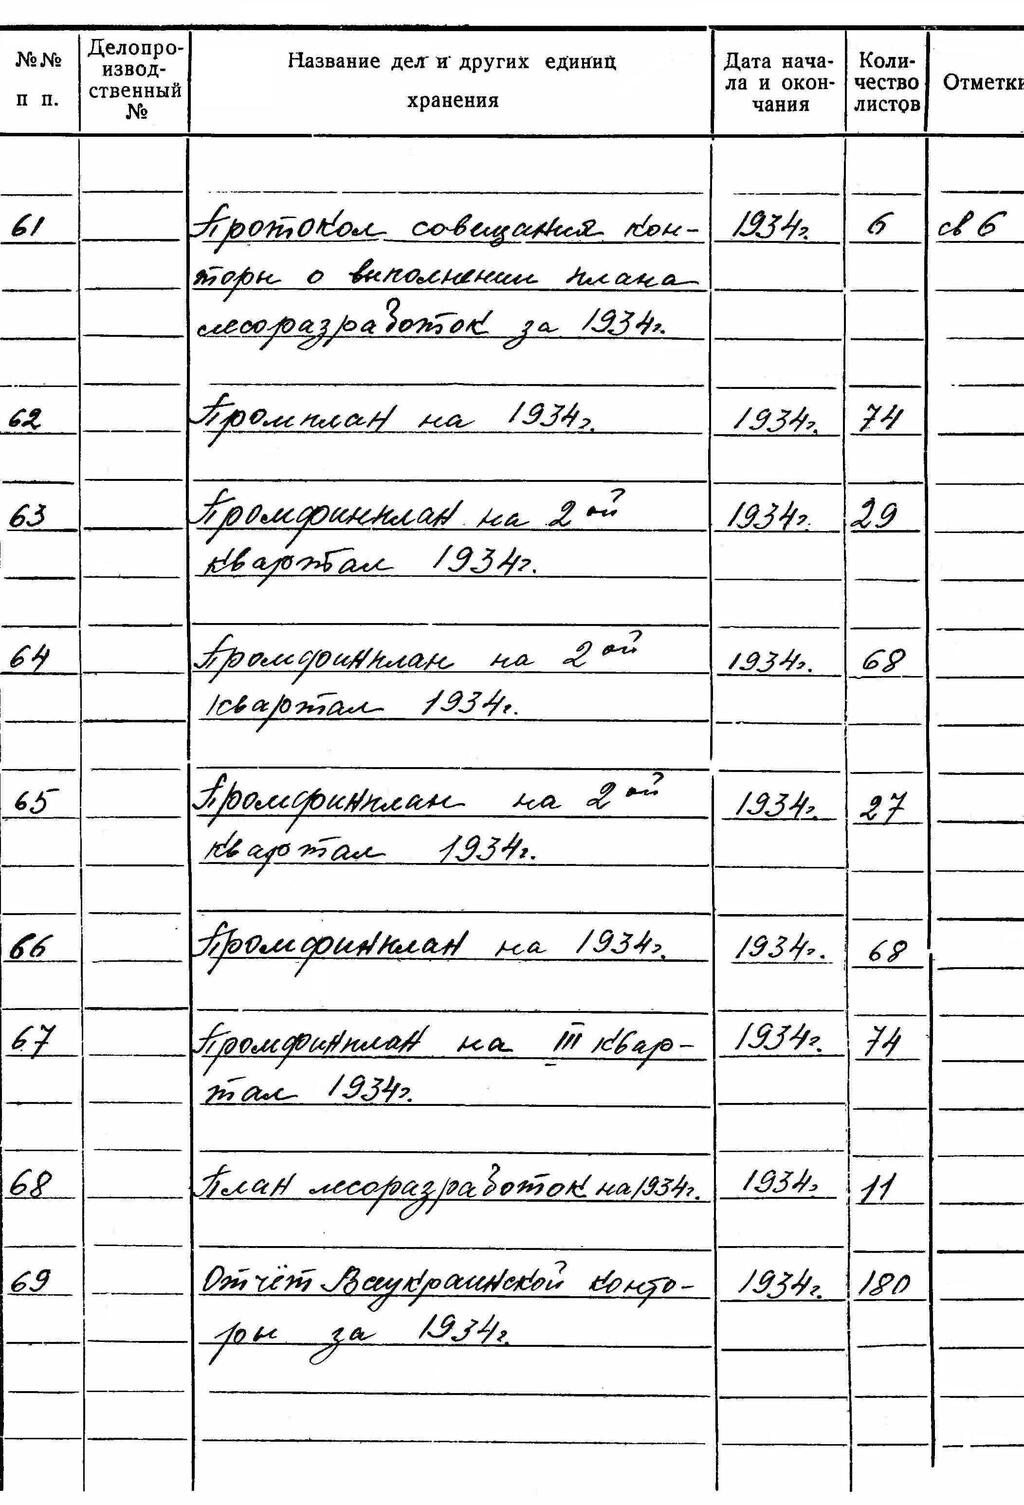 №№ п п.
Делопро-
извод-
ственный
№
Название дел и других единиц
хранения
Дата нача-
ла и окон-
чания
Коли-
чество
листов
Отметки
61 Протокол совещания кон- 1934г. 6 св 6
торы о выполнении плана
лесоразработок за 1934г.
62 Промплан на 1934г. 1934г. 74
63 Промфинплан на 2ой 1934г. 29
квартал 1934г.
64 Промфинплан на 2ой 1934г. 68
квартал 1934г.
65 Промфинплан на 2ой 1934г. 27
квартал 1934г.
66 Промфинплан на 1934г. 1934г. 68
67 Промфинплан на III квар- 1934г. 74
тал 1934г.
68 План лесоразработок на 1934г. 1934г 11
69 Отчёт Всеукраинской конто- 1934г. 180
ры за 1934г.